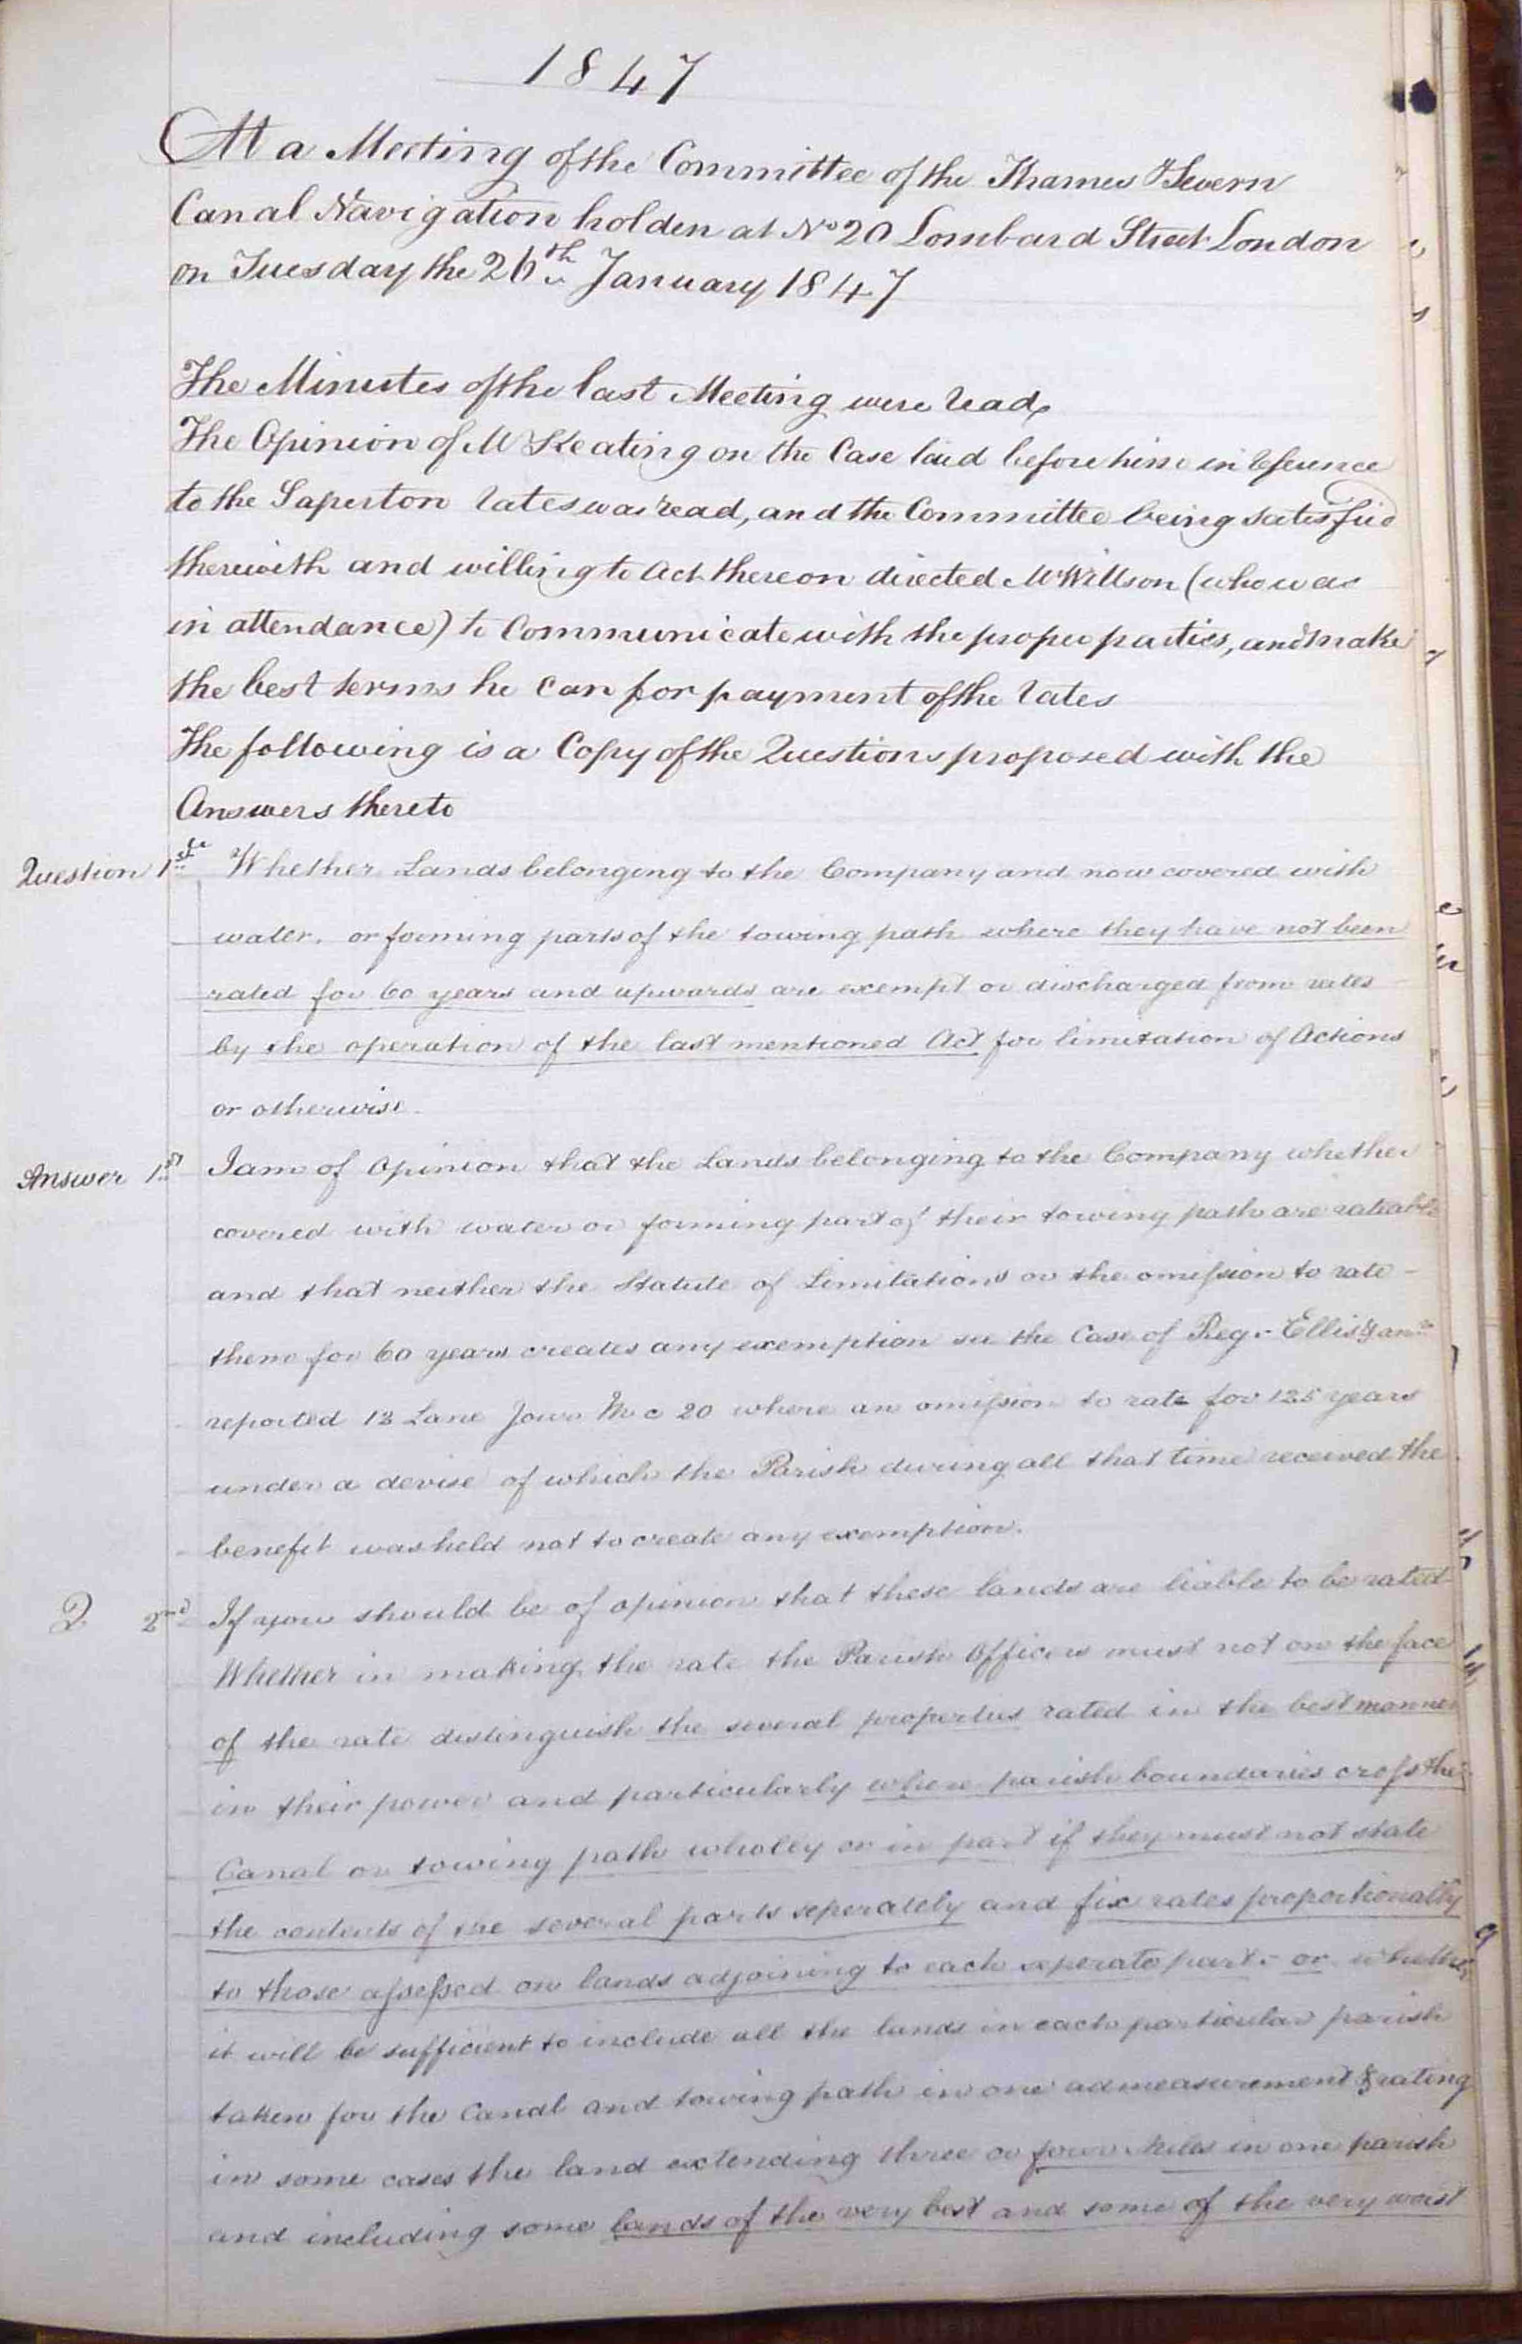 1847
At a Meeting of the Committee of the Thames & Severn
Canal Navigation holden at No 20 Lombard Street London
on Tuesday the 26th January 1847
The Minutes of the last Meeting were read
The Opinion of Mr Keating on the Case laid before him in reference
to the Saperton rates was read, and the Committee being satisfied
therewith and willing to Act thereon directed Mr Willson (who was
in attendance) to Communicate with the proper parties, and make
the best terms he can for payment of the rates
The following is a Copy of the Questions proposed with the
Answers thereto
Question 1st Whether Lands belonging to the Company and now covered with
water, or forming parts of the towing path where they have not been
rated for 60 years and upwards are exempt or discharged from rates
by the operation of the last mentioned Act for limitation of Actions
or otherwise
Answer 1st I am of Opinion that the Lands belonging to the Company whether
covered with water or forming part of their towing path are rateable
and that neither the Statute of Limitations or the omission to rate
them for 60 years creates any exemption see the Case of Reg. - Ellis &
reported 12 Law Jour. M c 20 where an omission to rate for 125 years
under a devise of which the Parish during all that time received the
benefit was held not to create any exemption.
Q 2nd If you should be of opinion that these lands are liable to be rated
Whether in making the rate the Parish Officers must not on the face
of the rate distinguish the several properties rated in the best manner
in their power and particularly where parish boundaries cross the
Canal or towing path wholly or in part if they must not state
the contents of the several parts seperately and fix rates proportionally
to those assessed on lands adjoining to each seperate part - or whether
it will be sufficient to include all the lands in each particular parish
taken for the Canal and towing path in one admeasurement & rating
in some cases the land extending three or four Miles in one parish
and including some lands of the very best and some of the very worst